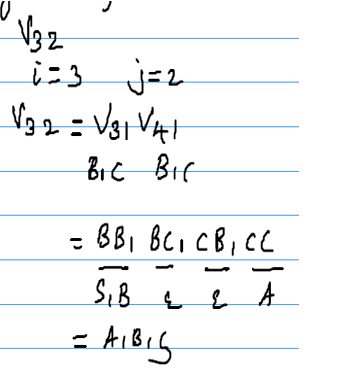 V32
i=3 j=2
V32 = V31 V41
B,C B,C
= BB, BC, CB, CC
S,B ε ε A
= A,B,S